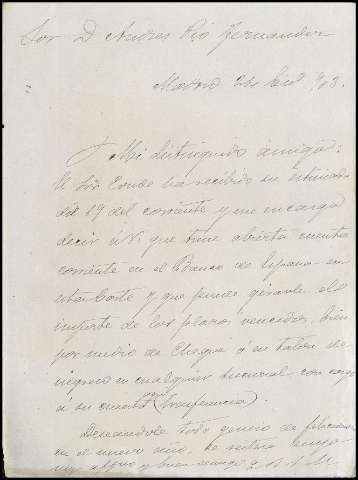 Sor D Andres Pio Fernandez
Madrid 24 Enº 903.
Mi distinguido amigo:
El Sor Conde ha recibido su estimada
del 19 del corriente y me encarga
decir á V. que tiene abierta cuenta
corriente en el Banco de España en
esta Corte y que puede girarle el
importe de los plazos vencidos, bien
por medio de Cheque ó en talon de
ingreso en cualquier sucursal con cargo
á su cuenta (transferencia).
Deseandole todo genero de felicidades
en el nuevo año, se reitera amigo
muy affmo y buen q. b. s. m.